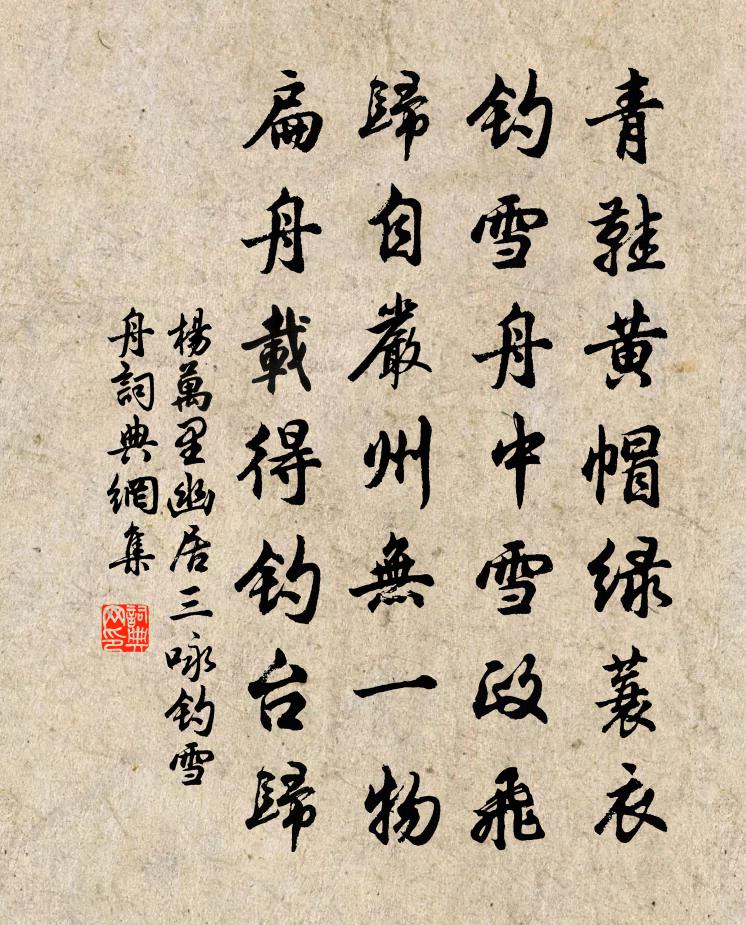 青鞋黄帽緑蓑衣
釣雪舟中雪政飛
歸自嚴州無一物
扁舟載得釣台歸
楊萬里幽居三咏釣雪
舟詞典網集
詞典
网印